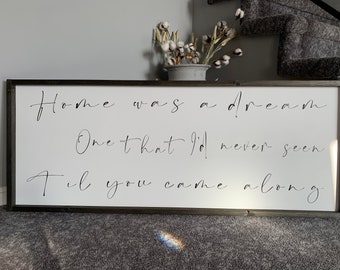 Home was a dream
One that I'd never seen
Til you came along